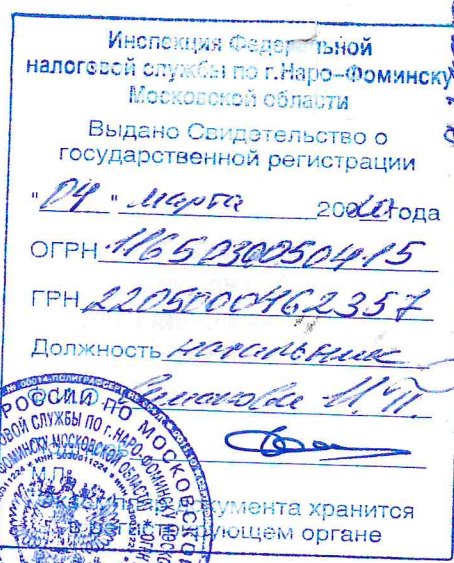 Инспекция Федеральной
налоговой службы по г.Наро-Фоминску
Московской области
Выдано Свидетельство о
государственной регистрации
"04" марта 2020 года
ОГРН 1165030050415
ГРН 2205000462357
Должность начальник
И.П.
М.П.
документа хранится
в регистрирующем органе
РОССИИ ПО МОСКОВСКОЙ
СЛУЖБЫ ПО г.НАРО-ФОМИНСКУ МОСКОВСКОЙ ОБЛАСТИ